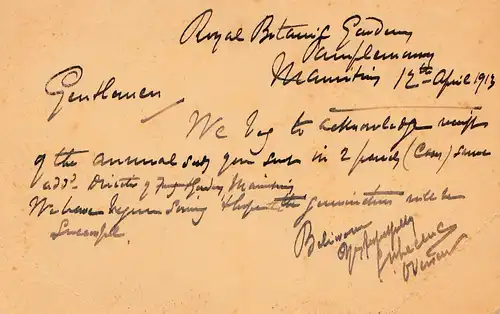 Royal Botanic Gardens
Pamplemousses
Mauritius 12th April 1913
Gentlemen
We beg to acknowledge receipt
of the annual seeds you sent in 2 parcels (Cans) same
add. Director of Gardens, Mauritius
We have begun sowing & hope the germination will be
successful.
Believe me
Yrs respectfully